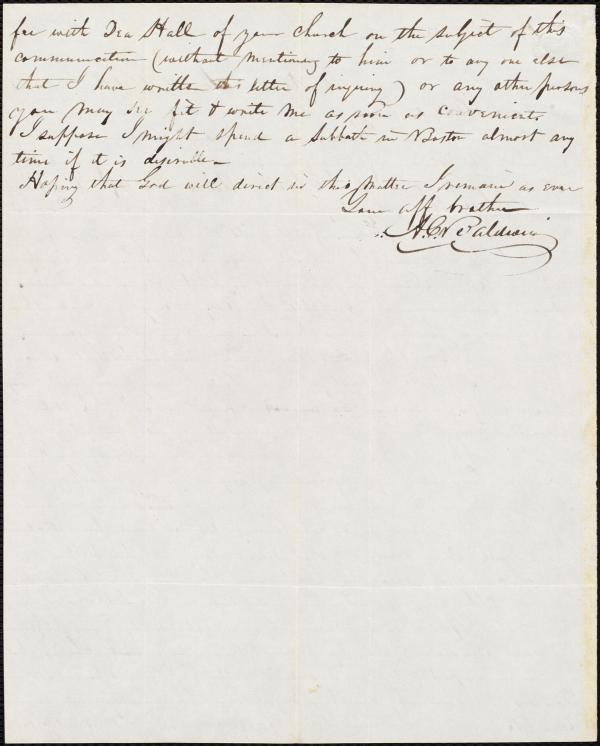 fer with Dea Hall of your church on the subject of this
communication (without mentioning to him or to any one else
that I have written this letter of inquiry) or any other persons
you may see fit & write me as soon as convenient.
I suppose I might spend a Sabbath in Boston almost any
time if it is desirable
Hoping that God will direct in this matter I remain as ever
Your aff brother
A.C. Baldwin